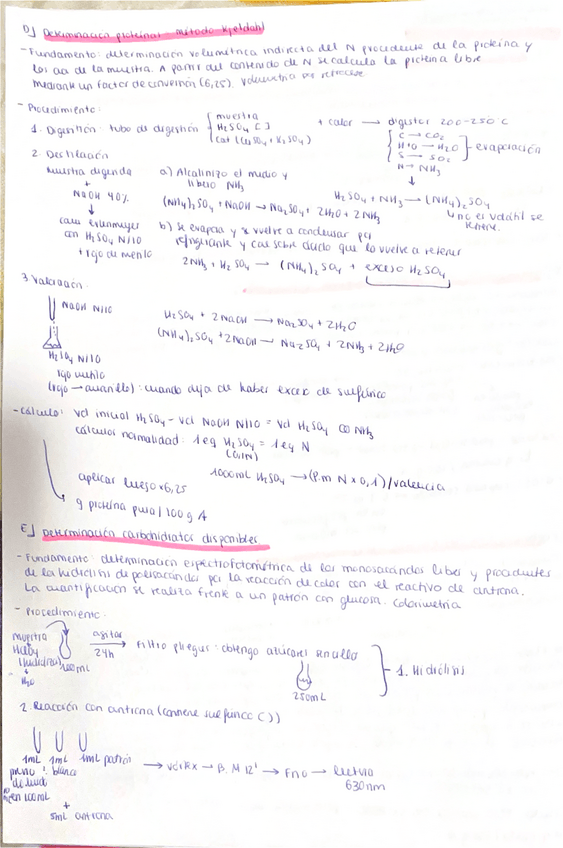 D] Determinación proteínas método Kjeldahl
- Fundamento: determinación volumétrica indirecta del N procedente de la proteína y
los aa de la muestra. A partir del contenido de N se calcula la proteína libre
mediante un factor de conversión (6,25). Volumetría por retroceso
- Procedimiento:
1. Digestión: tubo de digestión { muestra + calor → digestor 200-250 C
H₂SO₄ [ ]
cat (CuSO₄ + K₂SO₄)
C → CO₂
H+O → H₂O } evaporación
S → SO₂
N → NH₃
↓
H₂SO₄ + NH₃ → (NH₄)₂SO₄
↳ no es volátil se
retiene.
2. Destilación
muestra digerida
+
NaOH 40%
↓
cae erlenmeyer
con H₂SO₄ N/10
+ rojo de metilo
a) Alcalinizo el medio y
libero NH₃
(NH₄)₂SO₄ + NaOH → Na₂SO₄ + 2H₂O + 2NH₃
b) se evapora y se vuelve a condensar por
refrigerante y cae sobre ácido que lo vuelve a retener
2NH₃ + H₂SO₄ → (NH₄)₂SO₄ + exceso H₂SO₄
3. Valoración:
NaOH N/10
H₂SO₄ N/10
rojo metilo
H₂SO₄ + 2NaOH → Na₂SO₄ + 2H₂O
(NH₄)₂SO₄ + 2NaOH → Na₂SO₄ + 2NH₃ + 2H₂O
(rojo → amarillo): cuando deja de haber exceso de sulfúrico
- Cálculo: vol inicial H₂SO₄ - vol NaOH N/10 = vol H₂SO₄ NH₃
cálculos normalidad: 1 eq H₂SO₄ = 1 eq N
(0,1N)
1000mL H₂SO₄ → (P.m N x 0,1) / valencia
aplicar luego x 6,25
g proteína pura / 100 g A
E] Determinación carbohidratos disponibles
- Fundamento: determinación espectrofotométrica de los monosacáridos libres y procedentes
de la hidrólisis de polisacáridos por la reacción de color con el reactivo de antrona.
La cuantificación se realiza frente a un patrón con glucosa. Colorimetría
- Procedimiento:
muestra
+
(hidrólisis)
+
H₂O
100mL
agitar
24h
→ Filtro pliegues: obtengo azúcares sencillos
250mL
} 1. Hidrólisis
2. Reacción con antrona (contiene sulfúrico C))
1mL 1mL 1mL patrón
blanco
en 100mL
+
5mL antrona
→ vórtex → B.M 12' → Frío → lectura
630nm